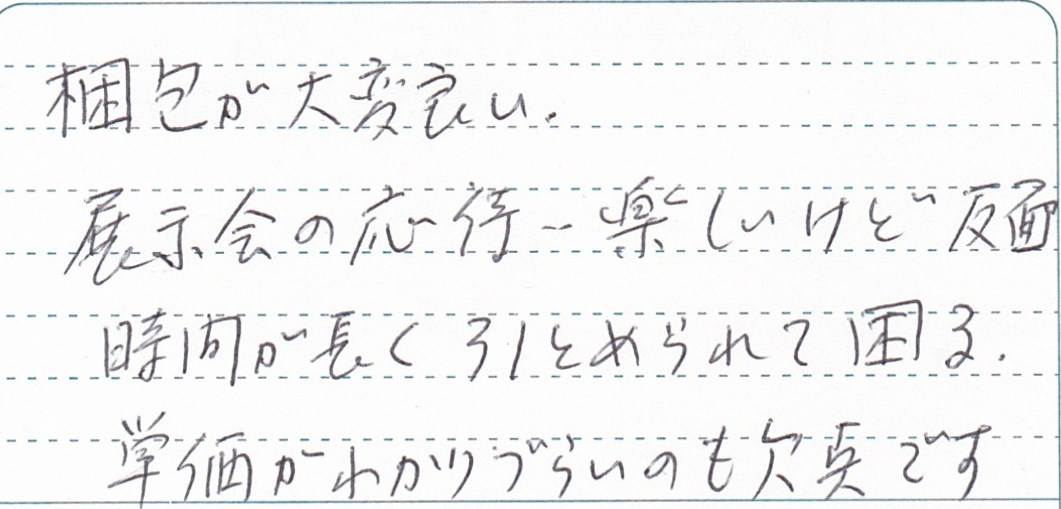 梱包が大変良い.
展示会の応待~楽しいけど反面
時間が長く引とめられて困る.
単価がわかりづらいのも欠点です